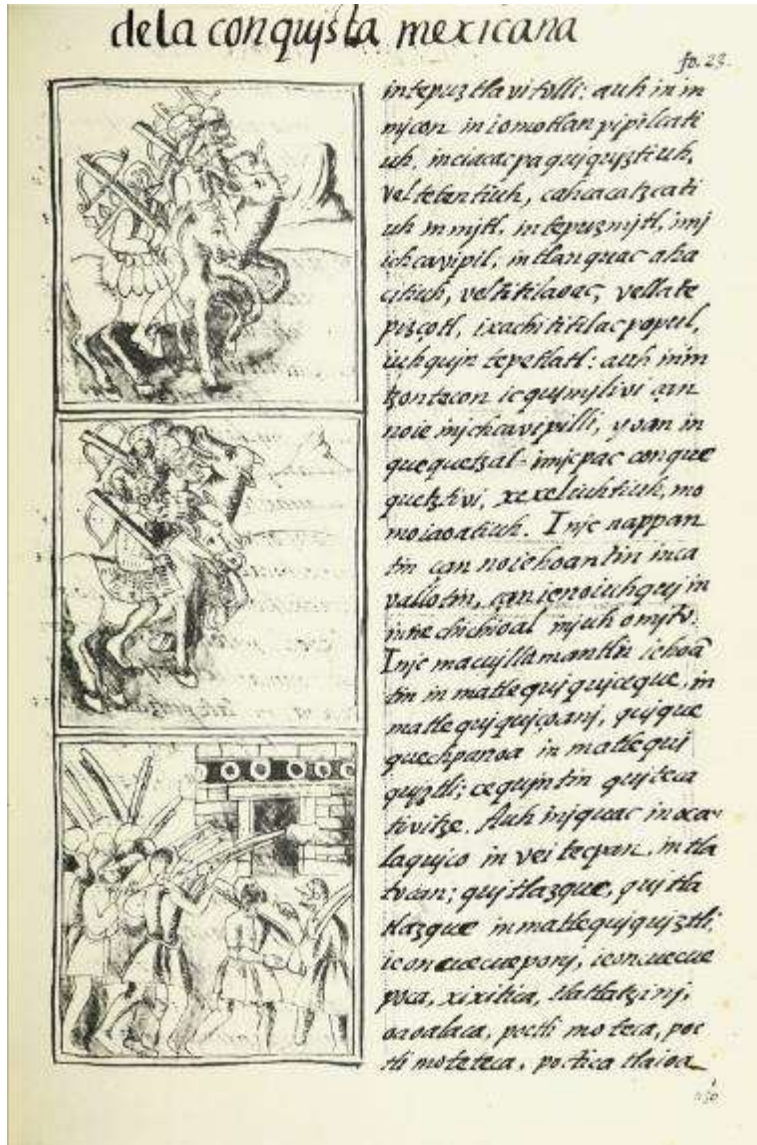 dela conquista mexicana
fo. 23.
intepuztlavitolli: auh in im
mjcon in iomotlan pipilcati
uh, inciacacpa quiquiztiuh,
vel tetentiuh, cahcacatzcati
uh in mjtl, in tepuzmjtl, imj
ichcavipil, in tlanquac aha
citiuh, veltitilaoac, vellate
pitzçotl, ixachi titilacpopul,
iuhqujn tepetlatl: auh inin
tzontecon ic qujmjlivi çan
noie injchcavipilli, yoan in
quequetzal imjcpac conque
quetztivi, xexeliuhtiuh, mo
moiaoatiuh. Injc nappan
tin çan noiehoantin inca
vallotin, çan ie no iuhquj in
innechichioal in juh omjto.
Injc macujllamantin iehoã
tin in matlequiquiceque, in
matlequiquiçoanj, quique
quechpanoa in matlequi
quiztli; cequjntin quiteca
tivitze. Auh injquac in oca
laqujco in vei tecpan, in tla
tocan; quitlazque, quitla
tlazque in matlequiquiztli,
iconcuecueponj, iconcuecue
poca, xixitica, tlatlatzinj,
oaoalaca, poctli moteca, poc
tli moteteca, poctica tlaioa